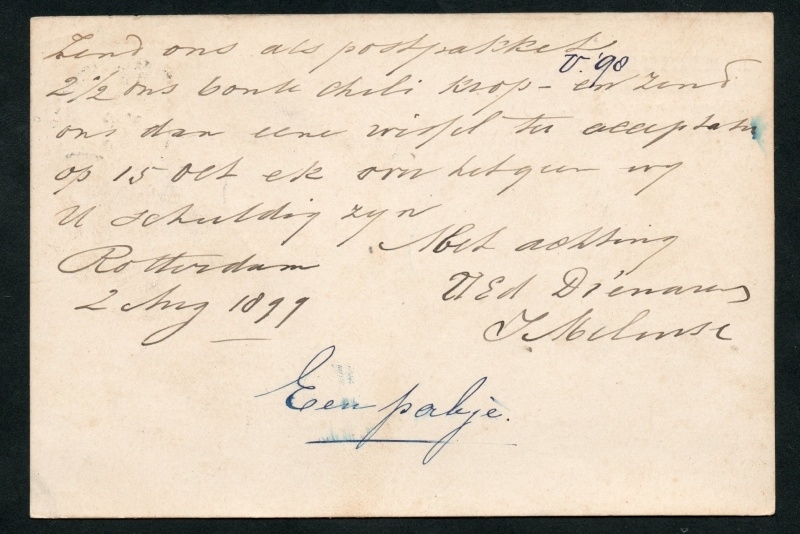 Zend ons als postpakket
V. '98
2 1/2 ons bonte chili krop - en zend
ons dan eene wissel ter acceptatie
op 15 Oct ek over hetgeen wy
U schuldig zyn
Met achting
Rotterdam
UEd Dienaren
2 Aug 1899
Een pakje.